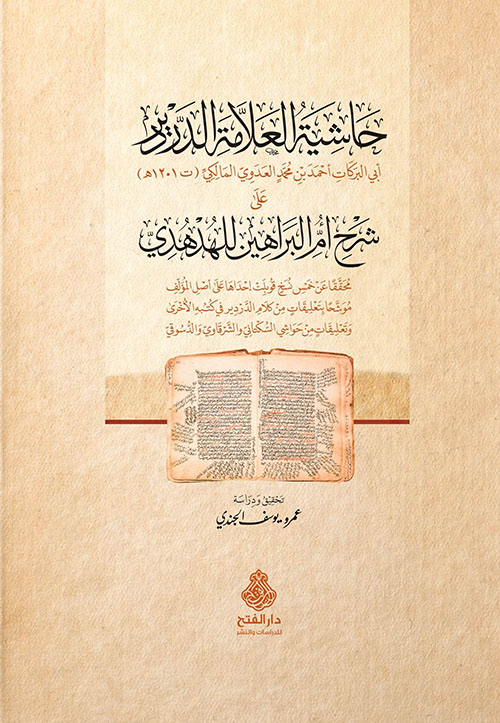 حَاشِيَةُ العَلَّامَةِ الدَّرْدِيرِ
أبي البَرَكَاتِ أحْمَدَ بْنِ مُحَمَّدٍ العَدَوِيِّ المَالِكِيِّ (ت ١٢٠١هـ)
عَلَى
شَرْحِ أُمِّ البَرَاهِينِ لِلهُدْهُدِيِّ
مُحَقَّقًا عَنْ خَمْسِ نُسَخٍ قُوبِلَتْ إحْدَاهَا عَلَى أصْلِ المُؤَلِّفِ
مُوَشَّحًا بِتَعْلِيقَاتٍ مِنْ كَلَامِ الدَّرْدِيرِ فِي كُتُبِهِ الأُخْرَى
وَتَعْلِيقَاتٍ مِنْ حَوَاشِي السُّكْتَانِيِّ وَالشَّرْقَاوِيِّ وَالدُّسُوقِيِّ
تَحْقِيقُ وَدِرَاسَة
عمرو يوسف الجندي
دار الفتح
للدراسات والنشر